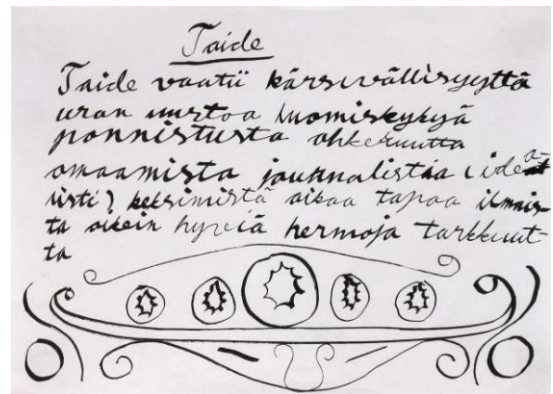 Taide
Taide vaatii kärsivällisyyttä
uran uurtoa luomiskykyä
ponnistusta ahkeruutta
omaamista journalistia (idea-
listi) keksimistä aikaa tapaa ilmais-
ta oikein hyviä hermoja tarkkuut-
ta